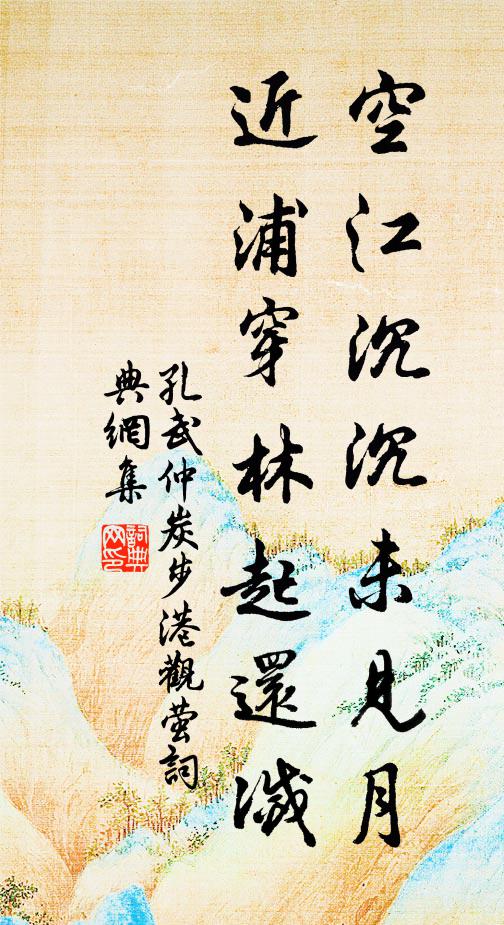 空江沉沉未見月
近浦穿林起還滅
孔武仲炭步港觀萤詞
典網集
詞典
网印